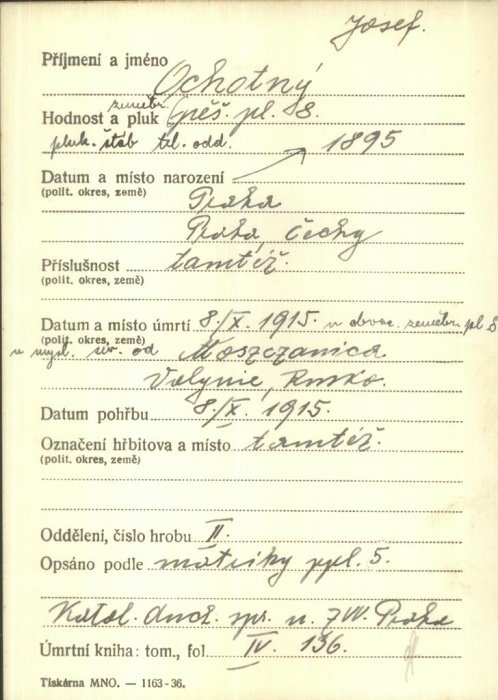 Josef.
Příjmení a jméno Ochotný
zeměbr.
Hodnost a pluk pěš. pl. 8.
pluk. štáb tel. odd. 1895
Datum a místo narození
(polit. okres, země) Praha
Praha, Čechy
Příslušnost tamtéž.
(polit. okres, země)
Datum a místo úmrtí 8./X. 1915. u zeměbr. pl. 8
(polit. okres, země)
u od Moszczanica
Volynie, Rusko.
Datum pohřbu 8./X. 1915.
Označení hřbitova a místo tamtéž.
(polit. okres, země)
Oddělení, číslo hrobu II.
Opsáno podle matriky ppl. 5.
Katol. duch. spr. u ZVV. Praha
Úmrtní kniha: tom., fol. IV. 136.
Tiskárna MNO. — 1163-36.